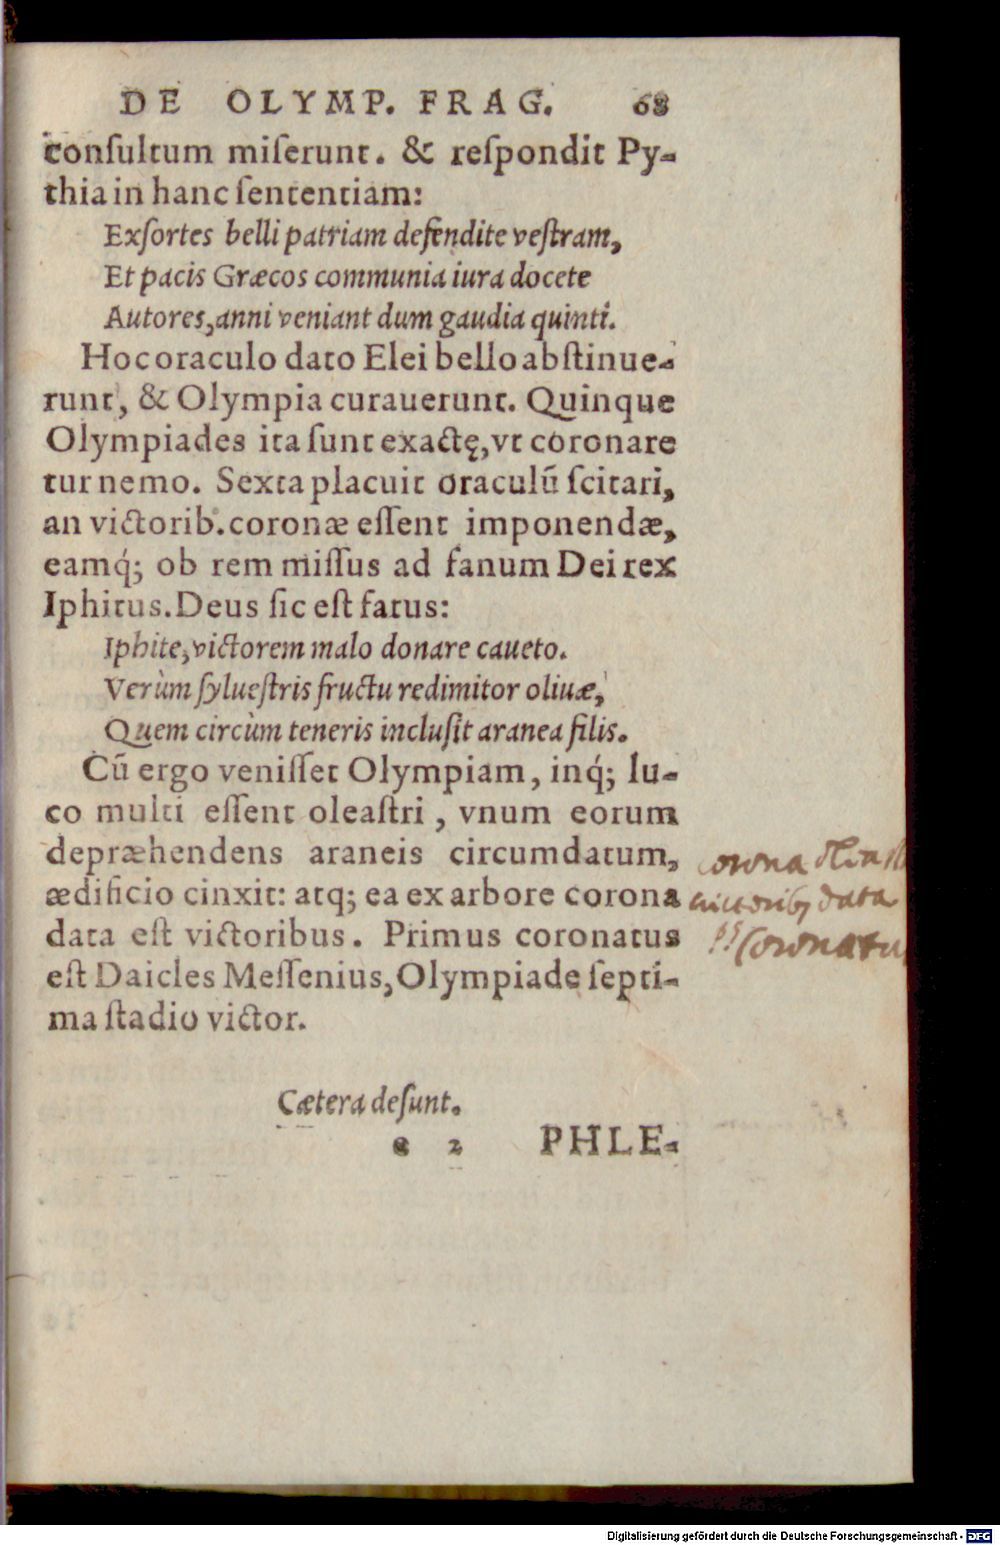 DE OLYMP. FRAG. 68
conſultum miſerunt. & reſpondit Py-
thia in hanc ſententiam:
Exſortes belli patriam defendite veſtram,
Et pacis Græcos communia iura docete
Autores, anni veniant dum gaudia quinti.
Hoc oraculo dato Elei bello abſtinue-
runt, & Olympia curauerunt. Quinque
Olympiades ita ſunt exactę, vt coronare
tur nemo. Sexta placuit oraculū ſcitari,
an victorib. coronæ eſſent imponendæ,
eamq́; ob rem miſſus ad fanum Dei rex
Iphitus. Deus ſic eſt fatus:
Iphite, victorem malo donare caueto.
Verùm ſylueſtris fructu redimitor oliuæ,
Quem circùm teneris incluſit aranea filis.
Cū ergo veniſſet Olympiam, inq́; lu-
co multi eſſent oleaſtri, vnum eorum
depræhendens araneis circumdatum,
ædificio cinxit: atq; ea ex arbore corona
data eſt victoribus. Primus coronatus
eſt Daicles Meſſenius, Olympiade ſepti-
ma ſtadio victor.
corona
victorib; data
Coronatu
Cætera deſunt.
2 PHLE-
Digitalisierung gefördert durch die Deutsche Forschungsgemeinschaft - DFG